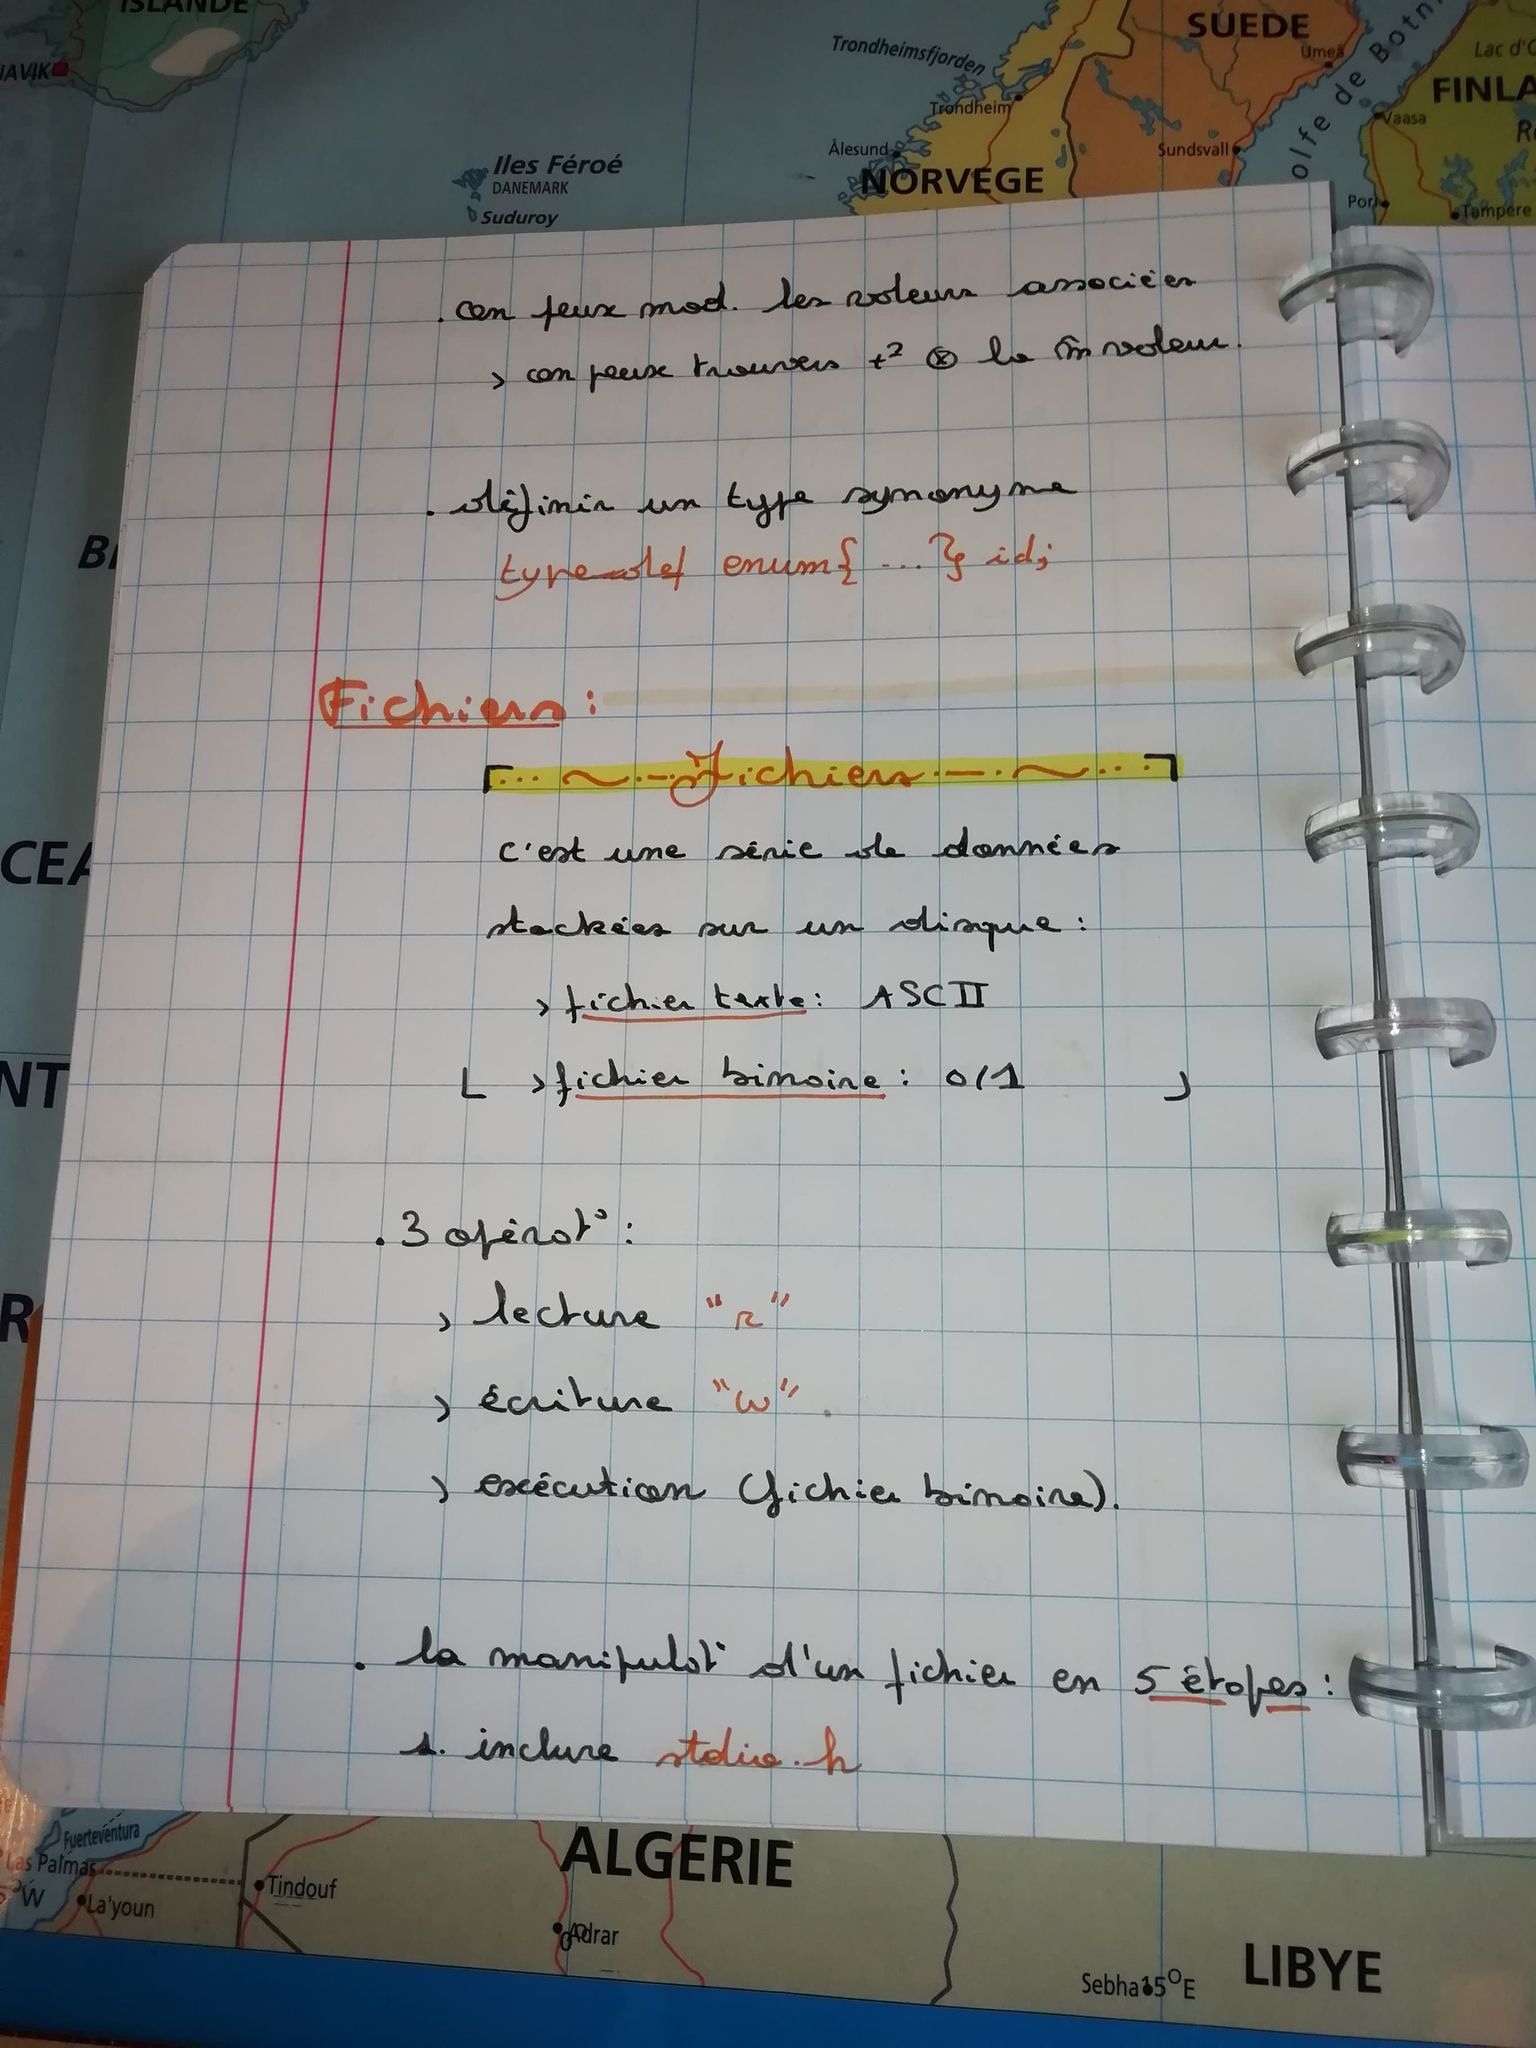 ISLANDE
SUEDE
Trondheimsfjorden
Umeå
Lac d'
FINLA
Trondheim
Vaasa
Ålesund
Sundsvall
olfe de Botn
NORVÈGE
Iles Féroé
DANEMARK
Suduroy
Pori
Tampere
. on peux mod. les valeurs associées
> on peux trouvers +² ⊗ la m̂ valeur.
. définir un type synonyme
typedef enum{ ... } id;
Fichiers :
Fichiers
c'est une série de données
stockées sur un disque :
> fichier texte : ASCII
> fichier binaire : 0/1
. 3 opérat° :
> lecture "r"
> écriture "w".
> exécution (fichier binaire).
. la manipulat° d'un fichier en 5 étapes :
1. inclure stdio.h
Fuerteventura
Las Palmas
La'youn
Tindouf
ALGERIE
Adrar
Sebha
15°E
LIBYE